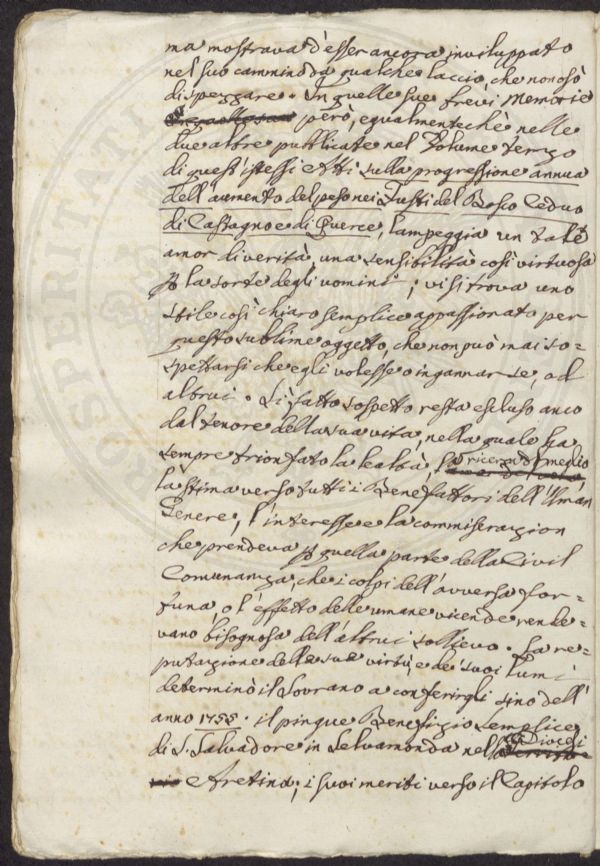 ma mostrava d'esser ancora inviluppato
nel suo cammino da qualche laccio, che non osò
di spezzare. In quelle sue brevi Memorie
però, egualmentechè nelle
due altre pubblicate nel Volume terzo
di quest'istessi Atti sulla progressione annua
dell'aumento del peso nei Fusti del Bosco Ceduo
di Castagno e di Querce, lampeggia un tale
amor di verità, una sensibilità così virtuosa
p la sorte degli uomini; vi si trova uno
stile così chiaro semplice appassionato per
questo sublime oggetto, che non può mai so-
spettarsi che egli volesse o ingannar se, od
altrui. Sì fatto sospetto resta escluso anco
dal tenore della sua vita, nella quale ha
sempre trionfato la lealtà, la ricerca del meglio
la stima verso tutti i Benefattori dell'Uman
Genere, l'interesse e la commiserazion
che prendeva p quella parte della Civil
Comunanza, che i colpi dell'avversa for-
tuna, o l'effetto delle umane vicende rende-
vano bisognosa dell'altrui sollievo. La re-
putazione delle sue virtù, e de' suoi lumi
determinò il Sovrano a conferirgli sino dell'
anno 1755. il pingue Benefizio semplice
di S. Salvadore in Selvamonda nella Diocesi
Aretina; i suoi meriti verso il Capitolo